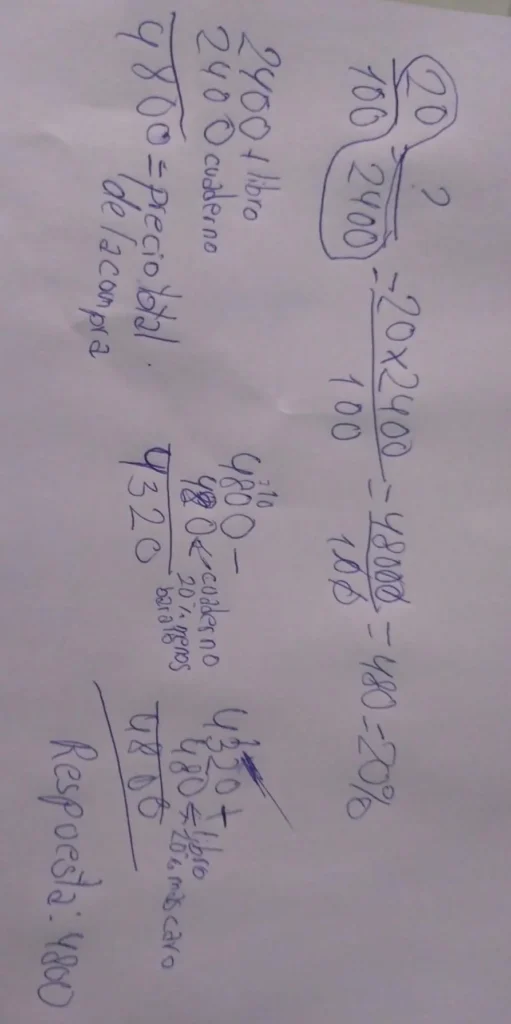 20/100 = ?/2400 = 20x2400/100 = 48000/100 = 480 = 20%
2400 + libro
2400 cuaderno
4800 = precio total
de la compra
4800 -
480 ← cuaderno
20% menos
barato
4320
4320 +
480 ← libro
20% mas caro
4800
Respuesta: 4800